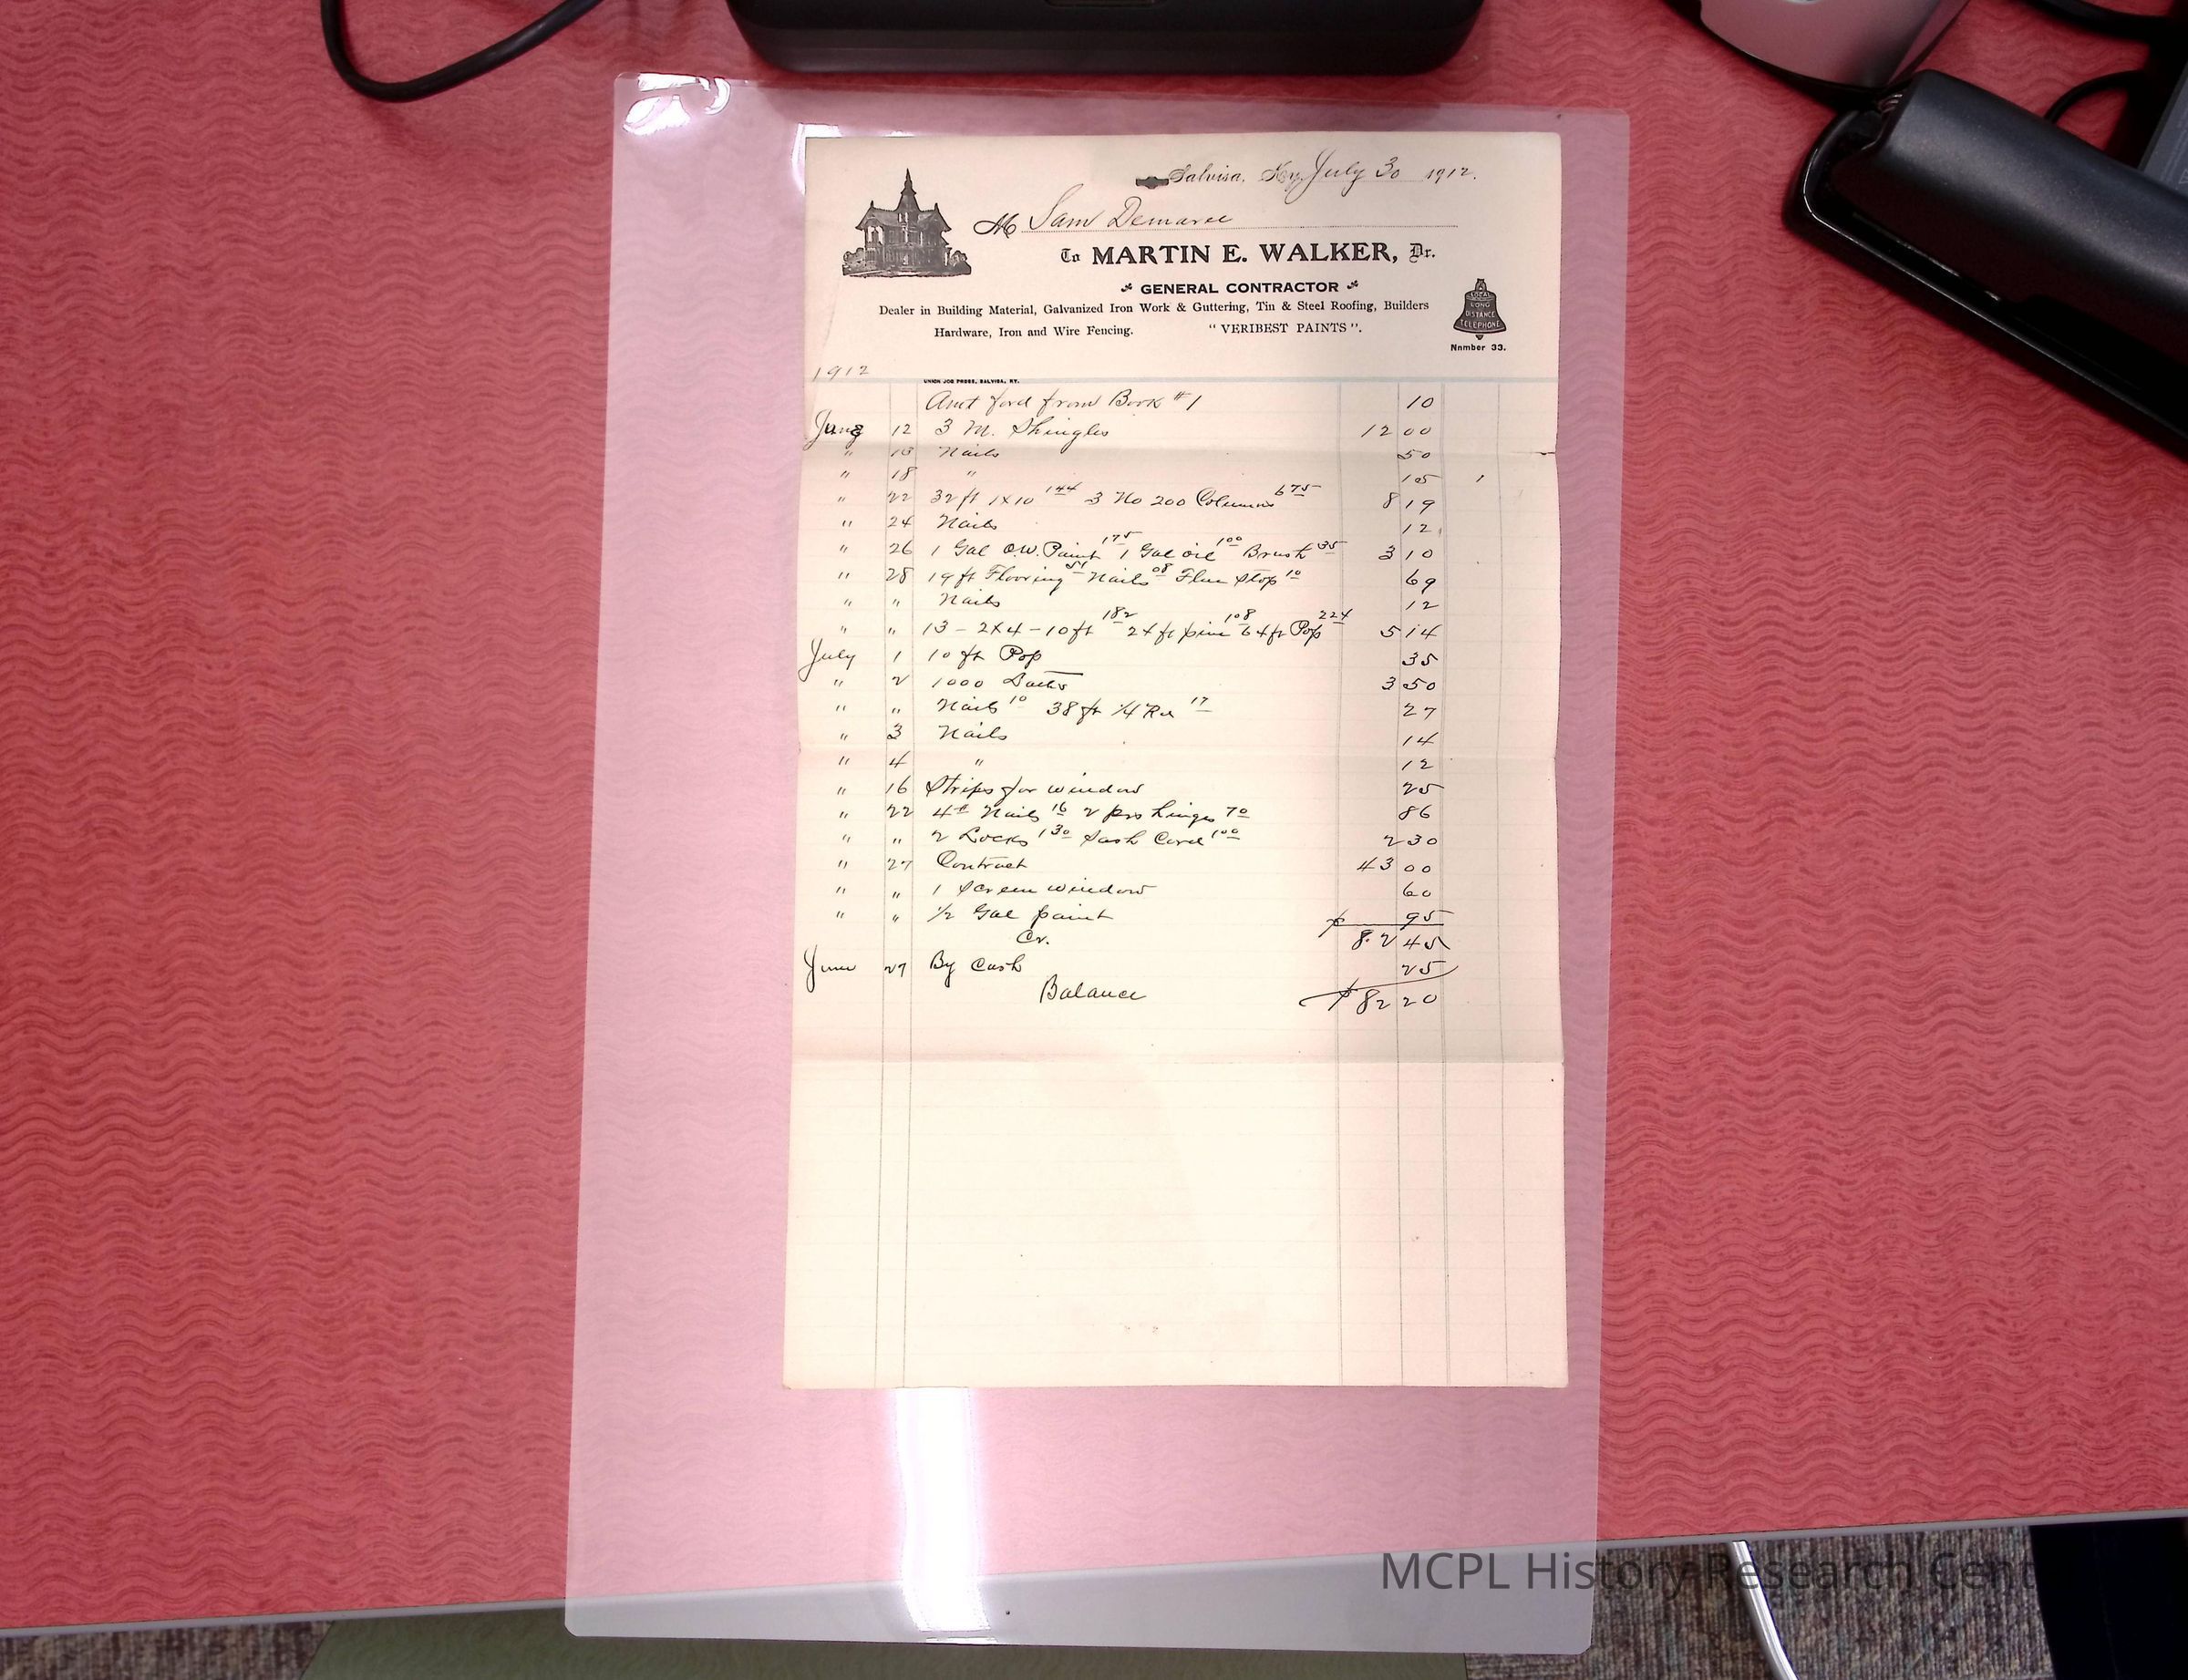 Salvisa, Ky July 30 1912.
M Sam Demaree
To MARTIN E. WALKER, Dr.
GENERAL CONTRACTOR
Dealer in Building Material, Galvanized Iron Work & Guttering, Tin & Steel Roofing, Builders
Hardware, Iron and Wire Fencing. "VERIBEST PAINTS".
LOCAL LONG DISTANCE TELEPHONE
Nnmber 33.
1912
UNION JOB PRESS, SALVISA, KY.
Amt ford from Book #1 10
June 12 3 M. Shingles 12 00
" 13 Nails 50
" 18 " 105
" 22 32 ft 1x10 144 3 No 200 Columns 675 8 19
" 24 Nails 12
" 26 1 Gal O.W. Paint 175 1 Gal oil 100 Brush 35 3 10
" 28 19 ft Flooring 51 Nails 08 Flue Stop 10 69
" " Nails 12
" " 13 - 2x4 - 10 ft 182 24 ft pine 108 64 ft Pop 224 5 14
July 1 10 ft Pop 35
" 2 1000 Laths 3 50
" " Nails 10 38 ft 1/4 Rd 17 27
" 3 Nails 14
" 4 " 12
" 16 Strips for window 25
" 22 4# Nails 16 2 prs hinges 70 86
" " 2 Locks 130 Sash Cord 100 2 30
" 27 Contract 43 00
" " 1 Screen window 60
" " 1/2 Gal paint 95
Cr. $ 82 45
June 27 By Cash 25
Balance $82 20
MCPL History Research Cent